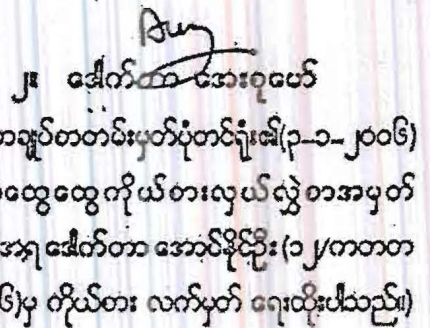 ၂။ ဒေါက်တာ အေးစုမော်
ာချုပ်စာတမ်းမှတ်ပုံတင်ရုံး၏(၃-၁-၂၀၀၆)
ထွေထွေကိုယ်စားလှယ်လွှဲစာအမှတ်
အရ ဒေါက်တာ အောင်နိုင်ဦး (၁၂/ကတတ
၆)မှ ကိုယ်စား လက်မှတ် ရေးထိုးပါသည်။)